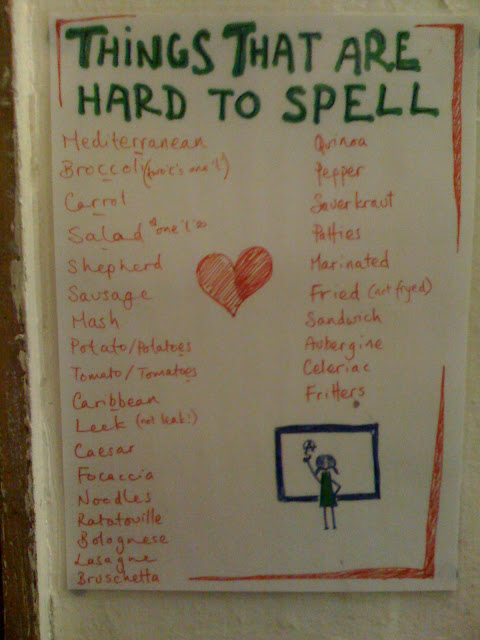 THINGS THAT ARE
HARD TO SPELL
Mediterranean
Broccoli (two c's one 'l')
Carrot
Salad one 'l'
Shepherd
Sausage
Mash
Potato/Potatoes
Tomato/Tomatoes
Caribbean
Leek (not leak!)
Caesar
Focaccia
Noodles
Ratatouille
Bolognese
Lasagne
Bruschetta
Quinoa
Pepper
Sauerkraut
Patties
Marinated
Fried (not fryed)
Sandwich
Aubergine
Celeriac
Fritters